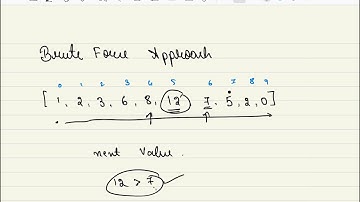 Brute Force Approach
0 1 2 3 4 5 6 7 8 9
[1, 2, 3, 6, 8, 12, 7, 5, 2, 0]
next value.
12 > 7